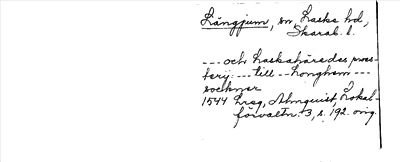 Långjum, sn, Laske hd,
Skarab. l.
--- och Laskahärades pros-
terij --- till --- Longhem ---
sochner
1544 hreg, Almquist, Lokal-
förvaltn. 3, s. 192. orig.